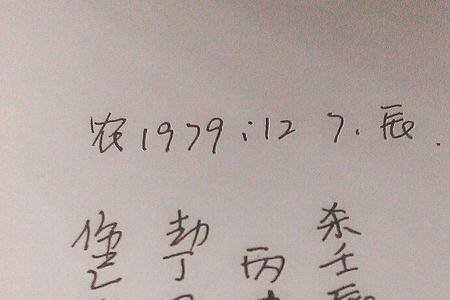 农1979:12 7.辰.
劫 杀
丁 丙 壬